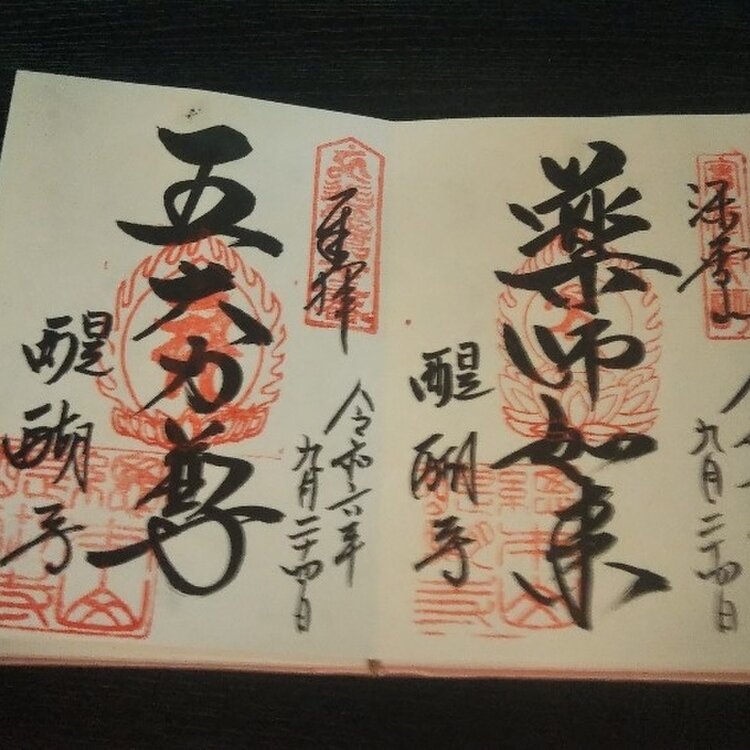 深雪山
薬師如来
醍醐寺
九月二十四日
奉拝
令和六年
九月二十四日
五大力尊
醍醐寺